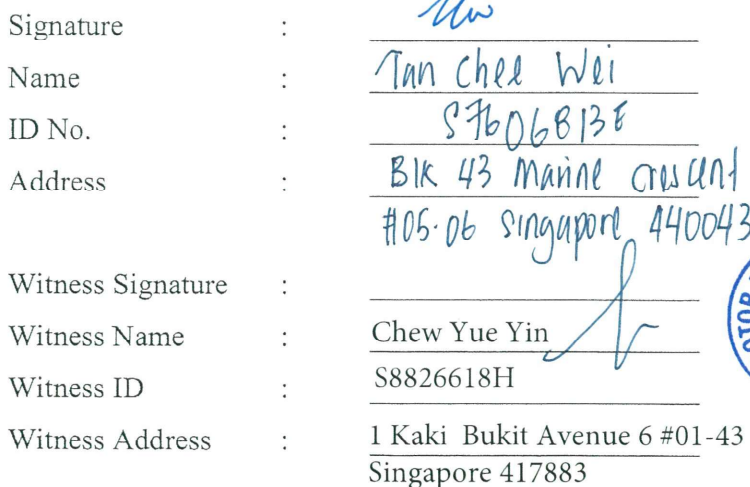 Signature :
Name : Tan Chee Wei
ID No. : S7606813E
Address : Blk 43 Marine Crescent
#05-06 Singapore 440043
Witness Signature :
Witness Name : Chew Yue Yin
Witness ID : S8826618H
Witness Address : 1 Kaki Bukit Avenue 6 #01-43
Singapore 417883